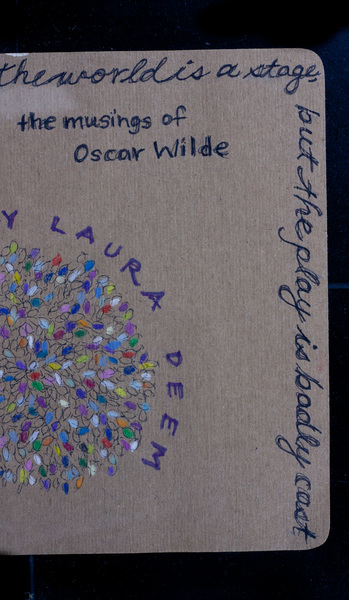 the world is a stage,
but the play is badly cast
the musings of
Oscar Wilde
Y LAURA DEEM